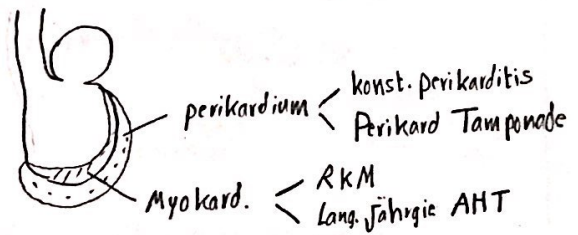 perikardium
konst. perikarditis
Perikard Tamponade
Myokard.
RKM
Lang. jährgie AHT